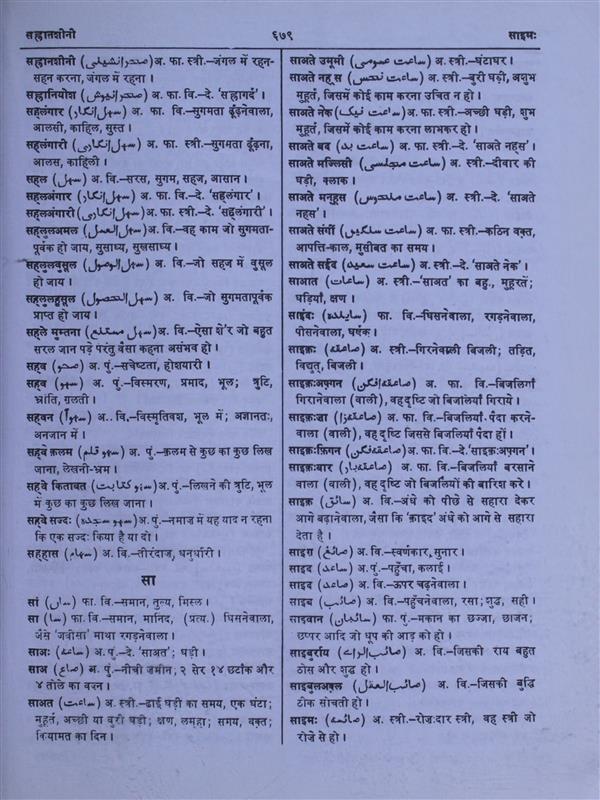 सह्रानशीनी
६७९
साइमः
सह्रानशीनी (صحرانشینی) अ. फा. स्त्री.–जंगल में रहन-
सहन करना, जंगल में रहना ।
सह्रानियोश (صحرانیوش) अ. फा. वि.–दे. 'सह्रागर्द' ।
सहलंगार (سہل انگار) अ. फा. वि.–सुगमता ढूँढ़नेवाला,
आलसी, काहिल, सुस्त ।
सहलंगारी (سہل انگاری) अ. फा. स्त्री.–सुगमता ढूँढ़ना,
आलस, काहिली ।
सहल (سہل) अ. वि.–सरस, सुगम, सहज, आसान ।
सहलअंगार (سہل انگار) अ. फा. वि.–दे. 'सहलंगार' ।
सहलअंगारी (سہل انگاری) अ. फा. स्त्री.–दे. 'सहलंगारी' ।
सहलुलअमल (سہل العمل) अ. वि.–वह काम जो सुगमता-
पूर्वक हो जाय, सुसाध्य, सुखसाध्य ।
सहलुलवुसूल (سہل الوصول) अ. वि.–जो सहज में वुसूल
हो जाय ।
सहलुलहुसूल (سہل الحصول) अ. वि.–जो सुगमतापूर्वक
प्राप्त हो जाय ।
सहले मुम्तना (سہل ممتنع) अ. वि.–ऐसा शे'र जो बहुत
सरल जान पड़े परंतु वैसा कहना असंभव हो ।
सहव (صحو) अ. पुं.–सचेष्टता, होशयारी ।
सहव (سہو) अ. पुं.–विस्मरण, प्रमाद, भूल; त्रुटि,
भ्रांति, ग़लती ।
सहवन (سہواً) अ. वि.–विस्मृतिवश, भूल में; अज्ञानतः,
अनजान में ।
सहवे क़लम (سہو قلم) अ. पुं.–क़लम से कुछ का कुछ लिख
जाना, लेखनी-भ्रम ।
सहवे किताबत (سہو کتابت) अ. पुं.–लिखने की त्रुटि, भूल
में कुछ का कुछ लिख जाना ।
सहवे सज्दः (سہو سجدہ) अ. पुं.–नमाज़ में यह याद न रहना
कि एक सज्दः किया है या दो ।
सहहास (سہام) अ. वि.–तीरंदाज़, धनुर्धारी ।
सा
सां (ساں) फा. वि.–समान, तुल्य, मिस्ल ।
सा (سا) फा. वि.–समान, मानिंद, (प्रत्य.) घिसनेवाला,
जैसे 'जबींसा' माथा रगड़नेवाला ।
साअः (ساعہ) अ. पुं.–दे. 'साअत'; घड़ी ।
साअ (صاع) अ. पुं.–नीची ज़मीन; २ सेर १४ छटाँक और
४ तोले का वज़न ।
साअत (ساعت) अ. स्त्री.–ढाई घड़ी का समय, एक घंटा;
मुहूर्त, अच्छी या बुरी घड़ी; क्षण, लमहा; समय, वक़्त;
क़ियामत का दिन ।
साअते उमूमी (ساعت عمومی) अ. स्त्री.–घंटाघर ।
साअते नहस (ساعت نحس) अ. स्त्री.–बुरी घड़ी, अशुभ
मुहूर्त, जिसमें कोई काम करना उचित न हो ।
साअते नेक (ساعت نیک) अ. फा. स्त्री.–अच्छी घड़ी, शुभ
मुहूर्त, जिसमें कोई काम करना लाभकर हो ।
साअते बद (ساعت بد) अ. फा. स्त्री.–दे. 'साअते नहस' ।
साअते मज्लिसी (ساعت مجلسی) अ. स्त्री.–दीवार की
घड़ी, क्लाक ।
साअते मन्हूस (ساعت منحوس) अ. स्त्री.–दे. 'साअते
नहस' ।
साअते संगीं (ساعت سنگین) अ. फा. स्त्री.–कठिन वक़्त,
आपत्ति-काल, मुसीबत का समय ।
साअते सईद (ساعت سعید) अ. स्त्री.–दे. 'साअते नेक' ।
साआत (ساعات) अ. स्त्री.–'साअत' का बहु., मुहूरतें;
घड़ियाँ, क्षण ।
साइंदः (سایندہ) फा. वि.–घिसनेवाला, रगड़नेवाला,
पीसनेवाला, घर्षक ।
साइक़ः (صاعقہ) अ. स्त्री.–गिरनेवाली बिजली; तड़ित,
विद्युत्, बिजली ।
साइक़ःअफ़्गन (صاعقہ افگن) अ. फा. वि.–बिजलियाँ
गिरानेवाला (वाली), वह दृष्टि जो बिजलियाँ गिराये ।
साइक़ःज़ा (صاعقہ زا) अ. फा. वि.–बिजलियाँ पैदा करने-
वाला (वाली), वह दृष्टि जिससे बिजलियाँ पैदा हों ।
साइक़ःफ़िगन (صاعقہ فگن) अ. फा. वि.–दे. 'साइक़ःअफ़्गन' ।
साइक़ःबार (صاعقہ بار) अ. फा. वि.–बिजलियाँ बरसाने
वाला (वाली), वह दृष्टि जो बिजलियों की बारिश करे ।
साइक़ (سائق) अ. वि.–अंधे को पीछे से सहारा देकर
आगे बढ़ानेवाला, जैसा कि 'क़ाइद' अंधे को आगे से सहारा
देता है ।
साइग़ (صائغ) अ. वि.–स्वर्णकार, सुनार ।
साइद (ساعد) अ. पुं.–पहुँचा, कलाई ।
साइद (صاعد) अ. वि.–ऊपर चढ़नेवाला ।
साइब (صائب) अ. वि.–पहुँचनेवाला, रसा; शुद्ध, सही ।
साइबान (سائبان) फा. पुं.–मकान का छज्जा, छाजन;
छप्पर आदि जो धूप की आड़ को हो ।
साइबुर्राय (صائب الراے) अ. वि.–जिसकी राय बहुत
ठोस और शुद्ध हो ।
साइबुलअक़्ल (صائب العقل) अ. वि.–जिसकी बुद्धि
ठीक सोचती हो ।
साइमः (صائمہ) अ. स्त्री.–रोज़ःदार स्त्री, वह स्त्री जो
रोज़े से हो ।